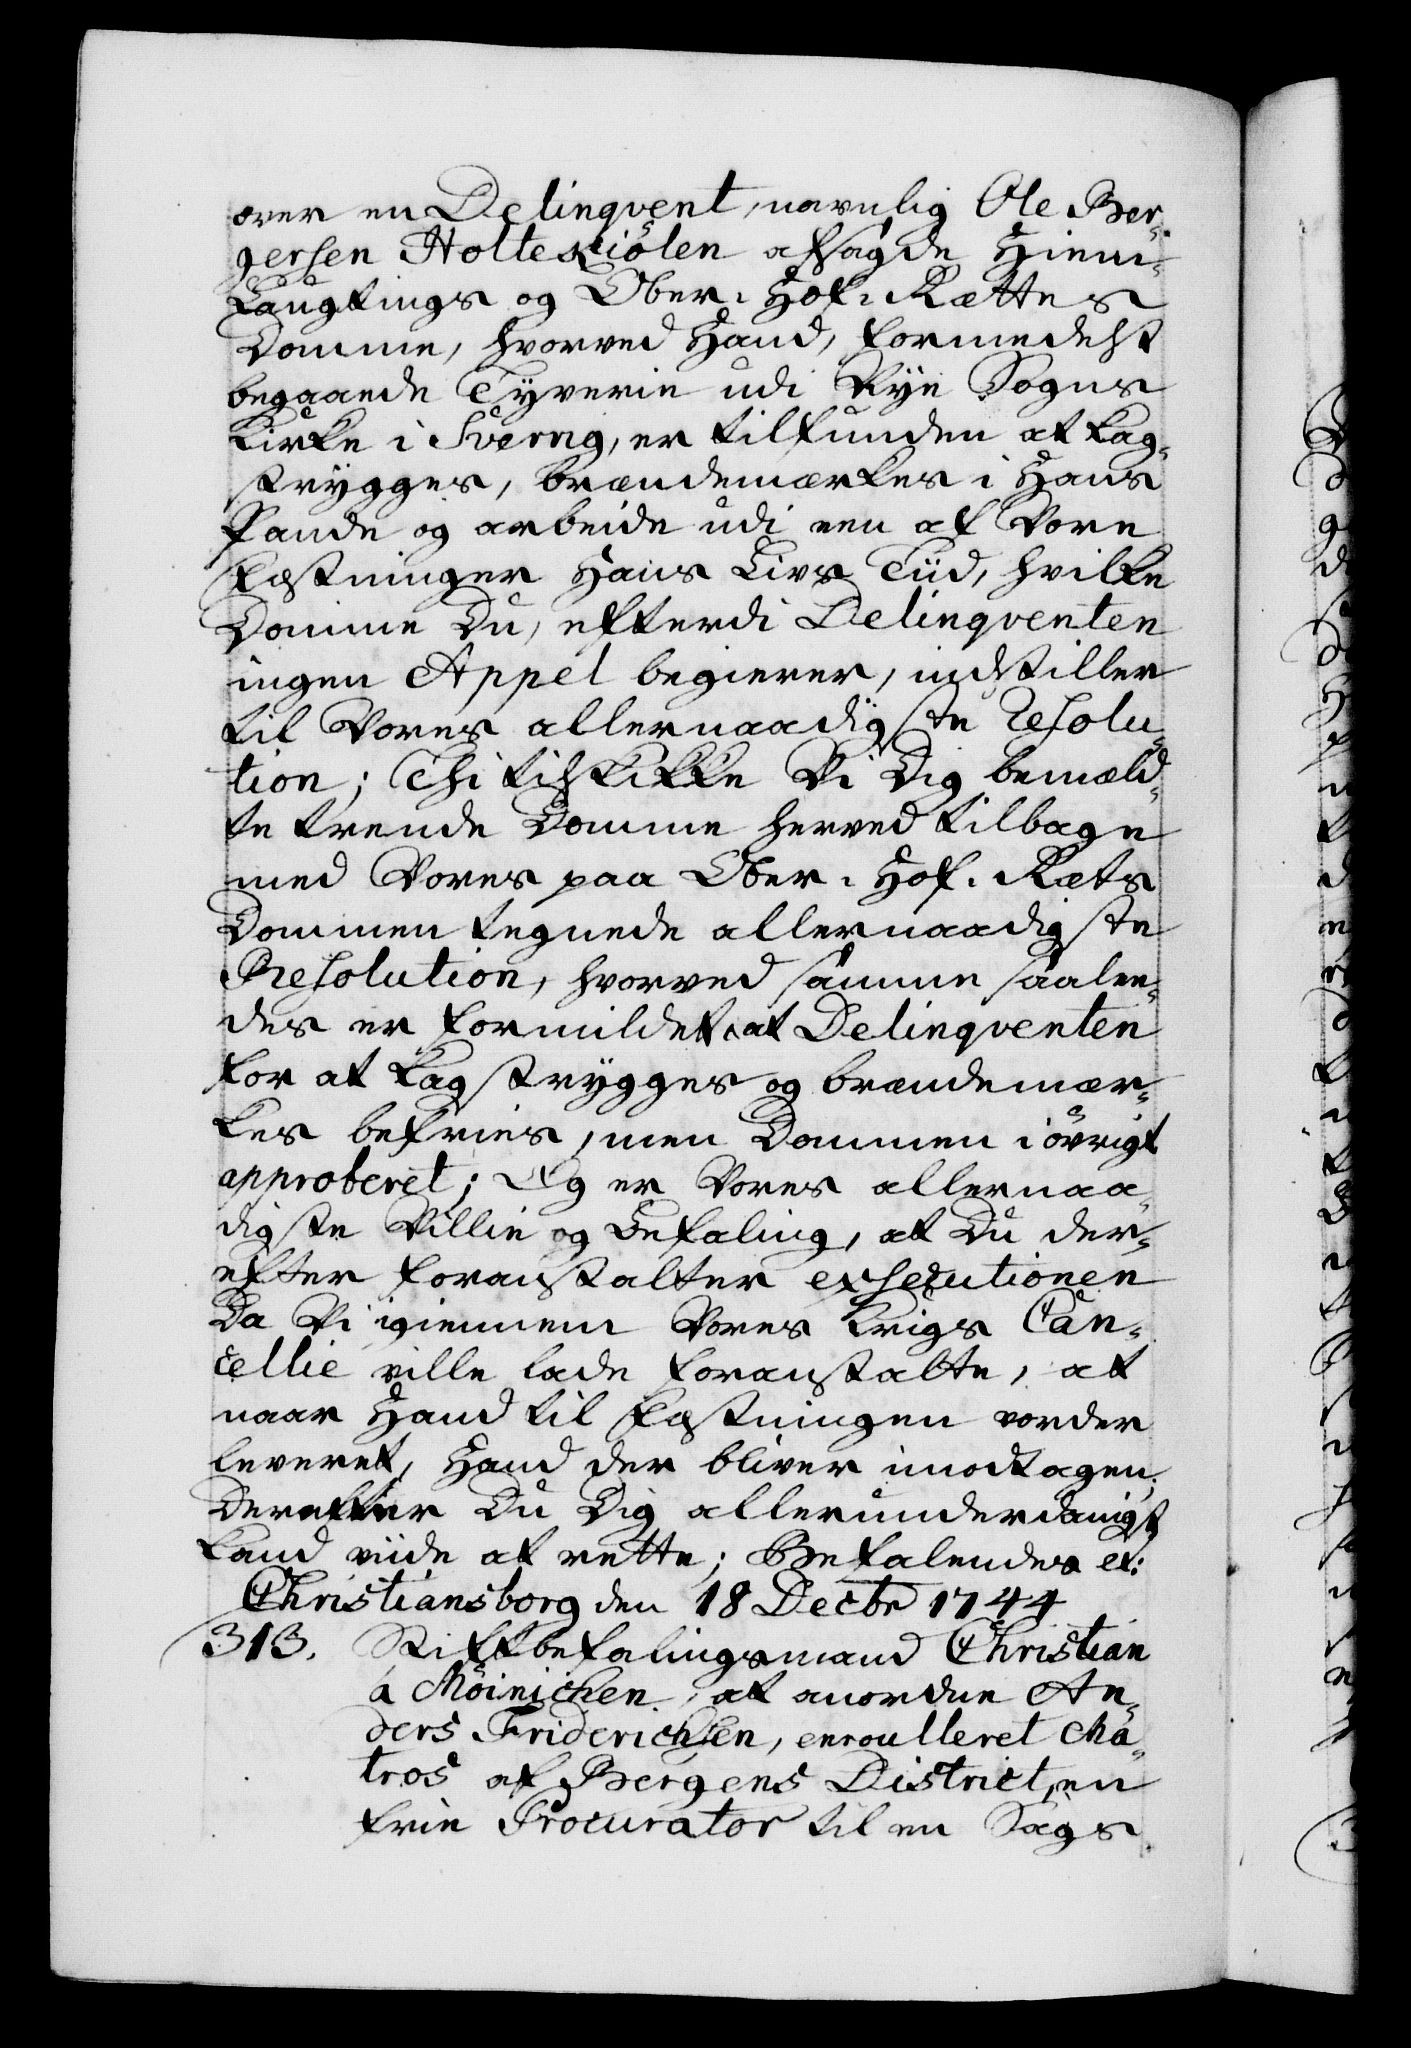 over en Delinqvent, navnlig Ole Ber-
gersen Holteskiölen afsagde Hiem-
Laugtings og Ober-Hof-Rettes
Domme, hvorved Hand, formedelst
begaaede Tyverie udi Rye Sogns
Kirke i Sverrig, er tilfunden at kag-
strygges, brændemærkes i Hans
Pande og arbeide udi een af Vore
Fæstninger Hans Livs Tiid, hvilke
Domme Du, efterdi Delinqventen
ingen Appel begierer, indstiller
til Vores allernaadigste Resolu-
tion; Thi tilskikke Vi Dig bemeld-
te trende Domme herved tilbage
med Vores paa Ober-Hof-Rets
Dommen tegnede allernaadigste
Resolution, hvorved samme saalee-
des er formildet, at Delinqventen
for at kagstrygges og brændemær-
kes befries, men Dommen i övrigt
approberet; Og er Vores allernaa-
digste Villie og Befaling, at Du der-
efter foranstalter exsecutionen
Da Vi igiennem Vores Krigs Can-
cellie ville lade foranstalte, at
naar Hand til Fæstningen vorder
leveret, Hand der bliver imodtagen;
Derefter Du Dig allerunderdanigst
kand viide at rette; Befalendes etc:
Christiansborg den 18 Decbr 1744
313. Stiftbefalingsmand Christian
á Möinichen, at anordne An-
ders Friderichsen, enroulleret Ma-
tros af Bergens District, en
frie Procurator til en Sags